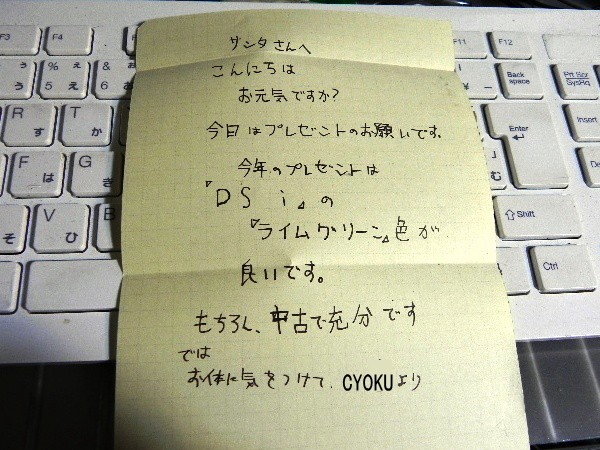 サンタさんへ
こんにちは
お元気ですか?
今日はプレゼントのお願いです。
今年のプレゼントは
『DSi』の
『ライムグリーン』色が
良いです。
もちろん、中古で充分です
では
お体に気をつけて、CYOKUより
F3 F4 F11 F12
% え & お
5 え 6 お
Back space
Prt Scr
SysRq
R す T か
Enter
Insert
F は G き
む
V ひ B
そ
Shift
Ctrl